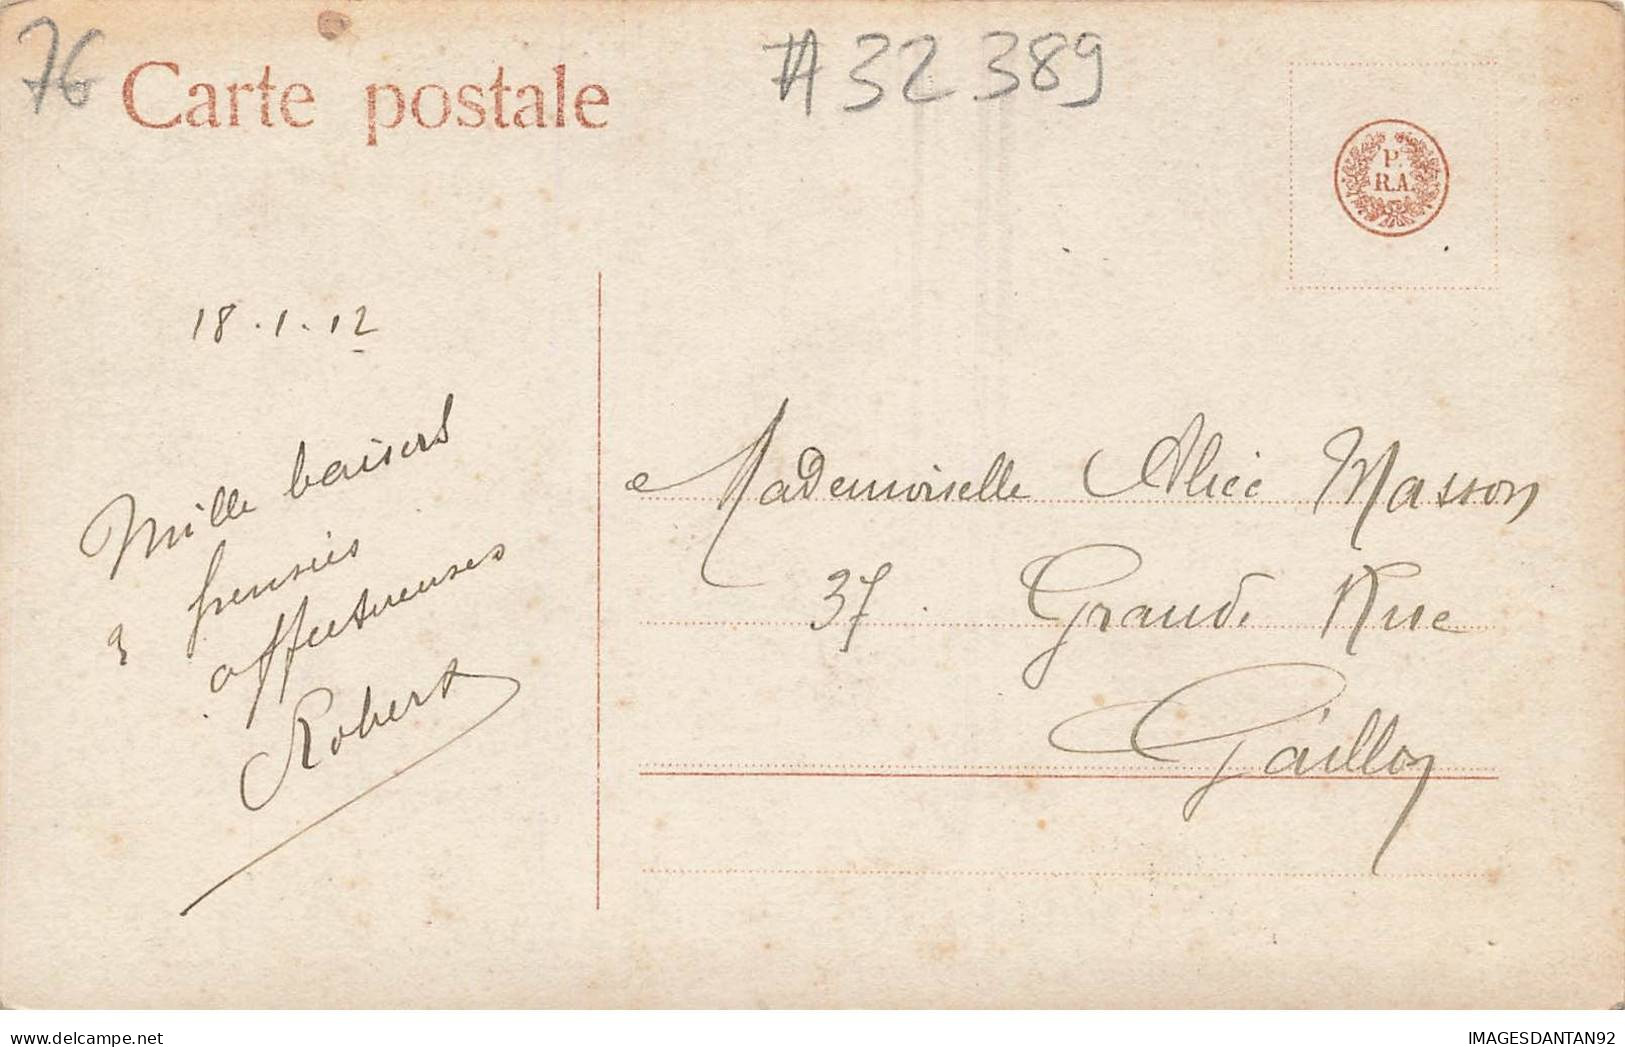 76
Carte postale
#32389
P.
R.A.
18.1.12
Mille baisers
& pensées
affectueuses
Robert
Mademoiselle Alice Masson
37 . Grande Rue
Gaillon
IMAGESDANTAN92